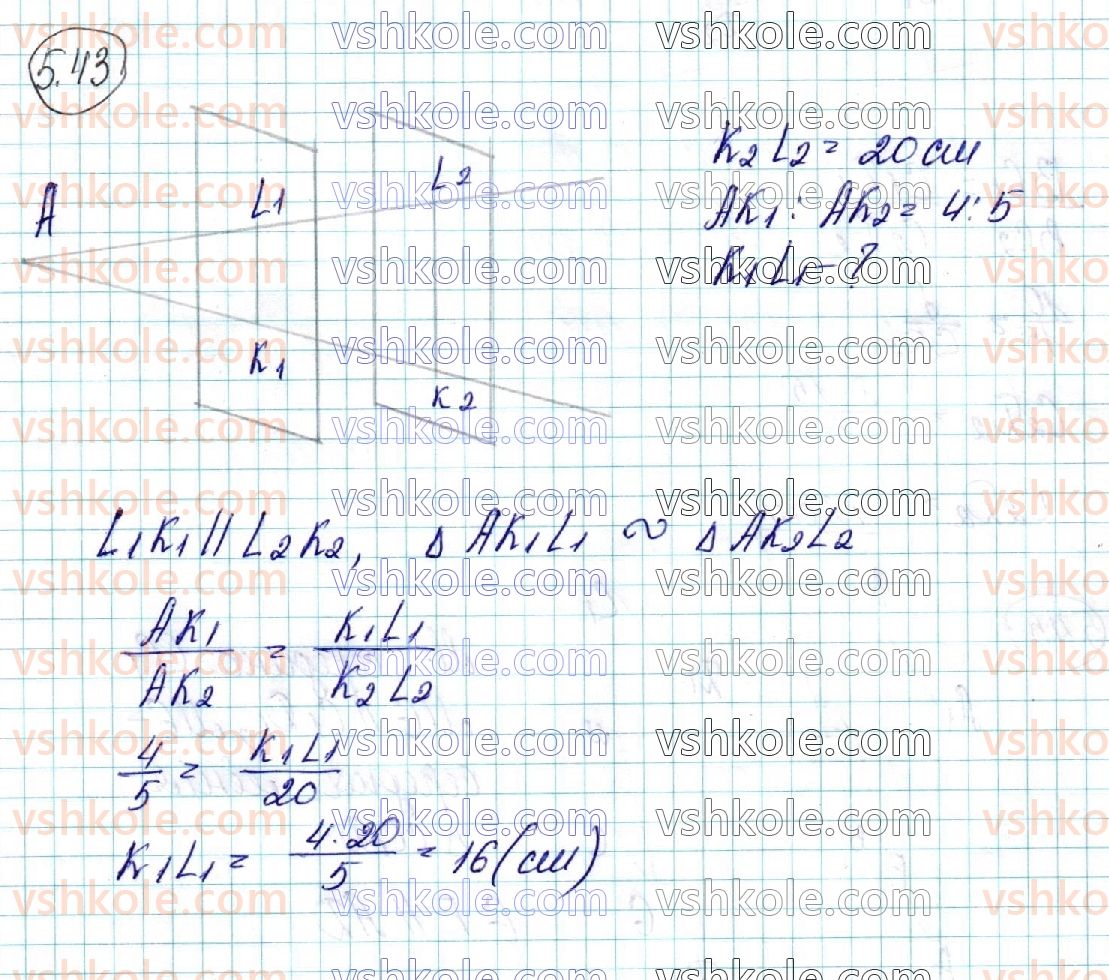 5.43
A
L1
L2
K1
K2
K2L2 = 20 см
AK1 : AK2 = 4 : 5
K1L1 – ?
L1K1 || L2K2, Δ AK1L1 ~ Δ AK2L2
AK1/AK2 = K1L1/K2L2
4/5 = K1L1/20
K1L1 = 4·20/5 = 16 (см)
vshkole.com